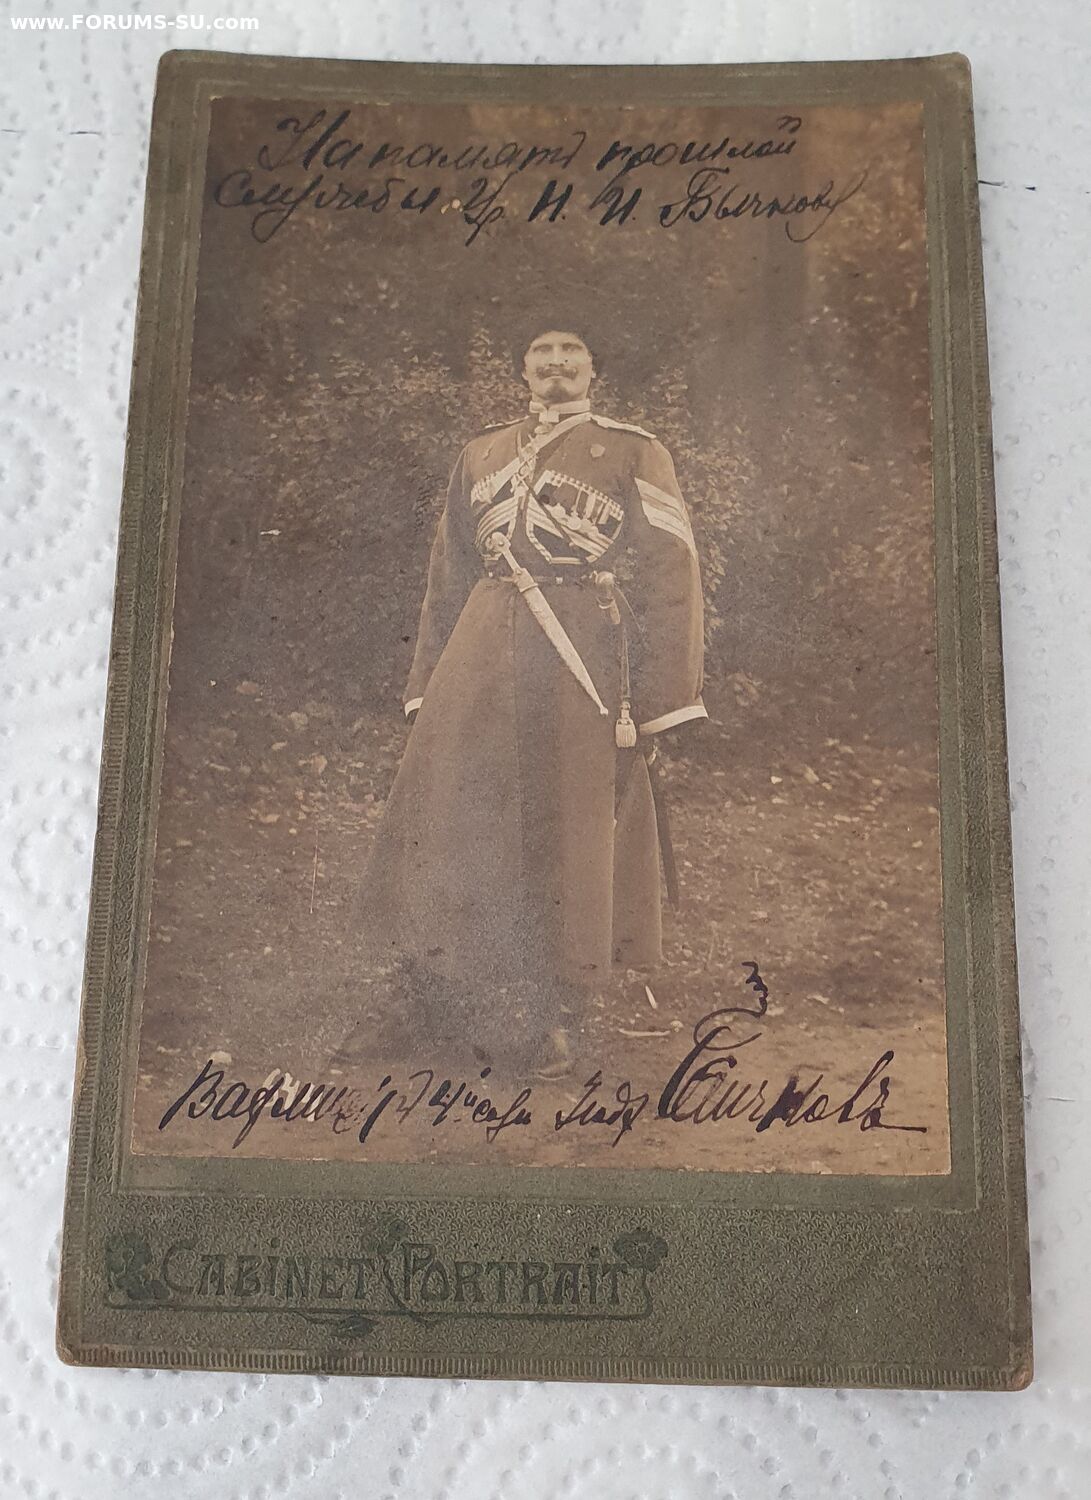 www.FORUMS-SU.com
На память прошлой
Службы И. И. Бычковъ
Вахмист 4й сотни Бычковъ
CABINET PORTRAIT